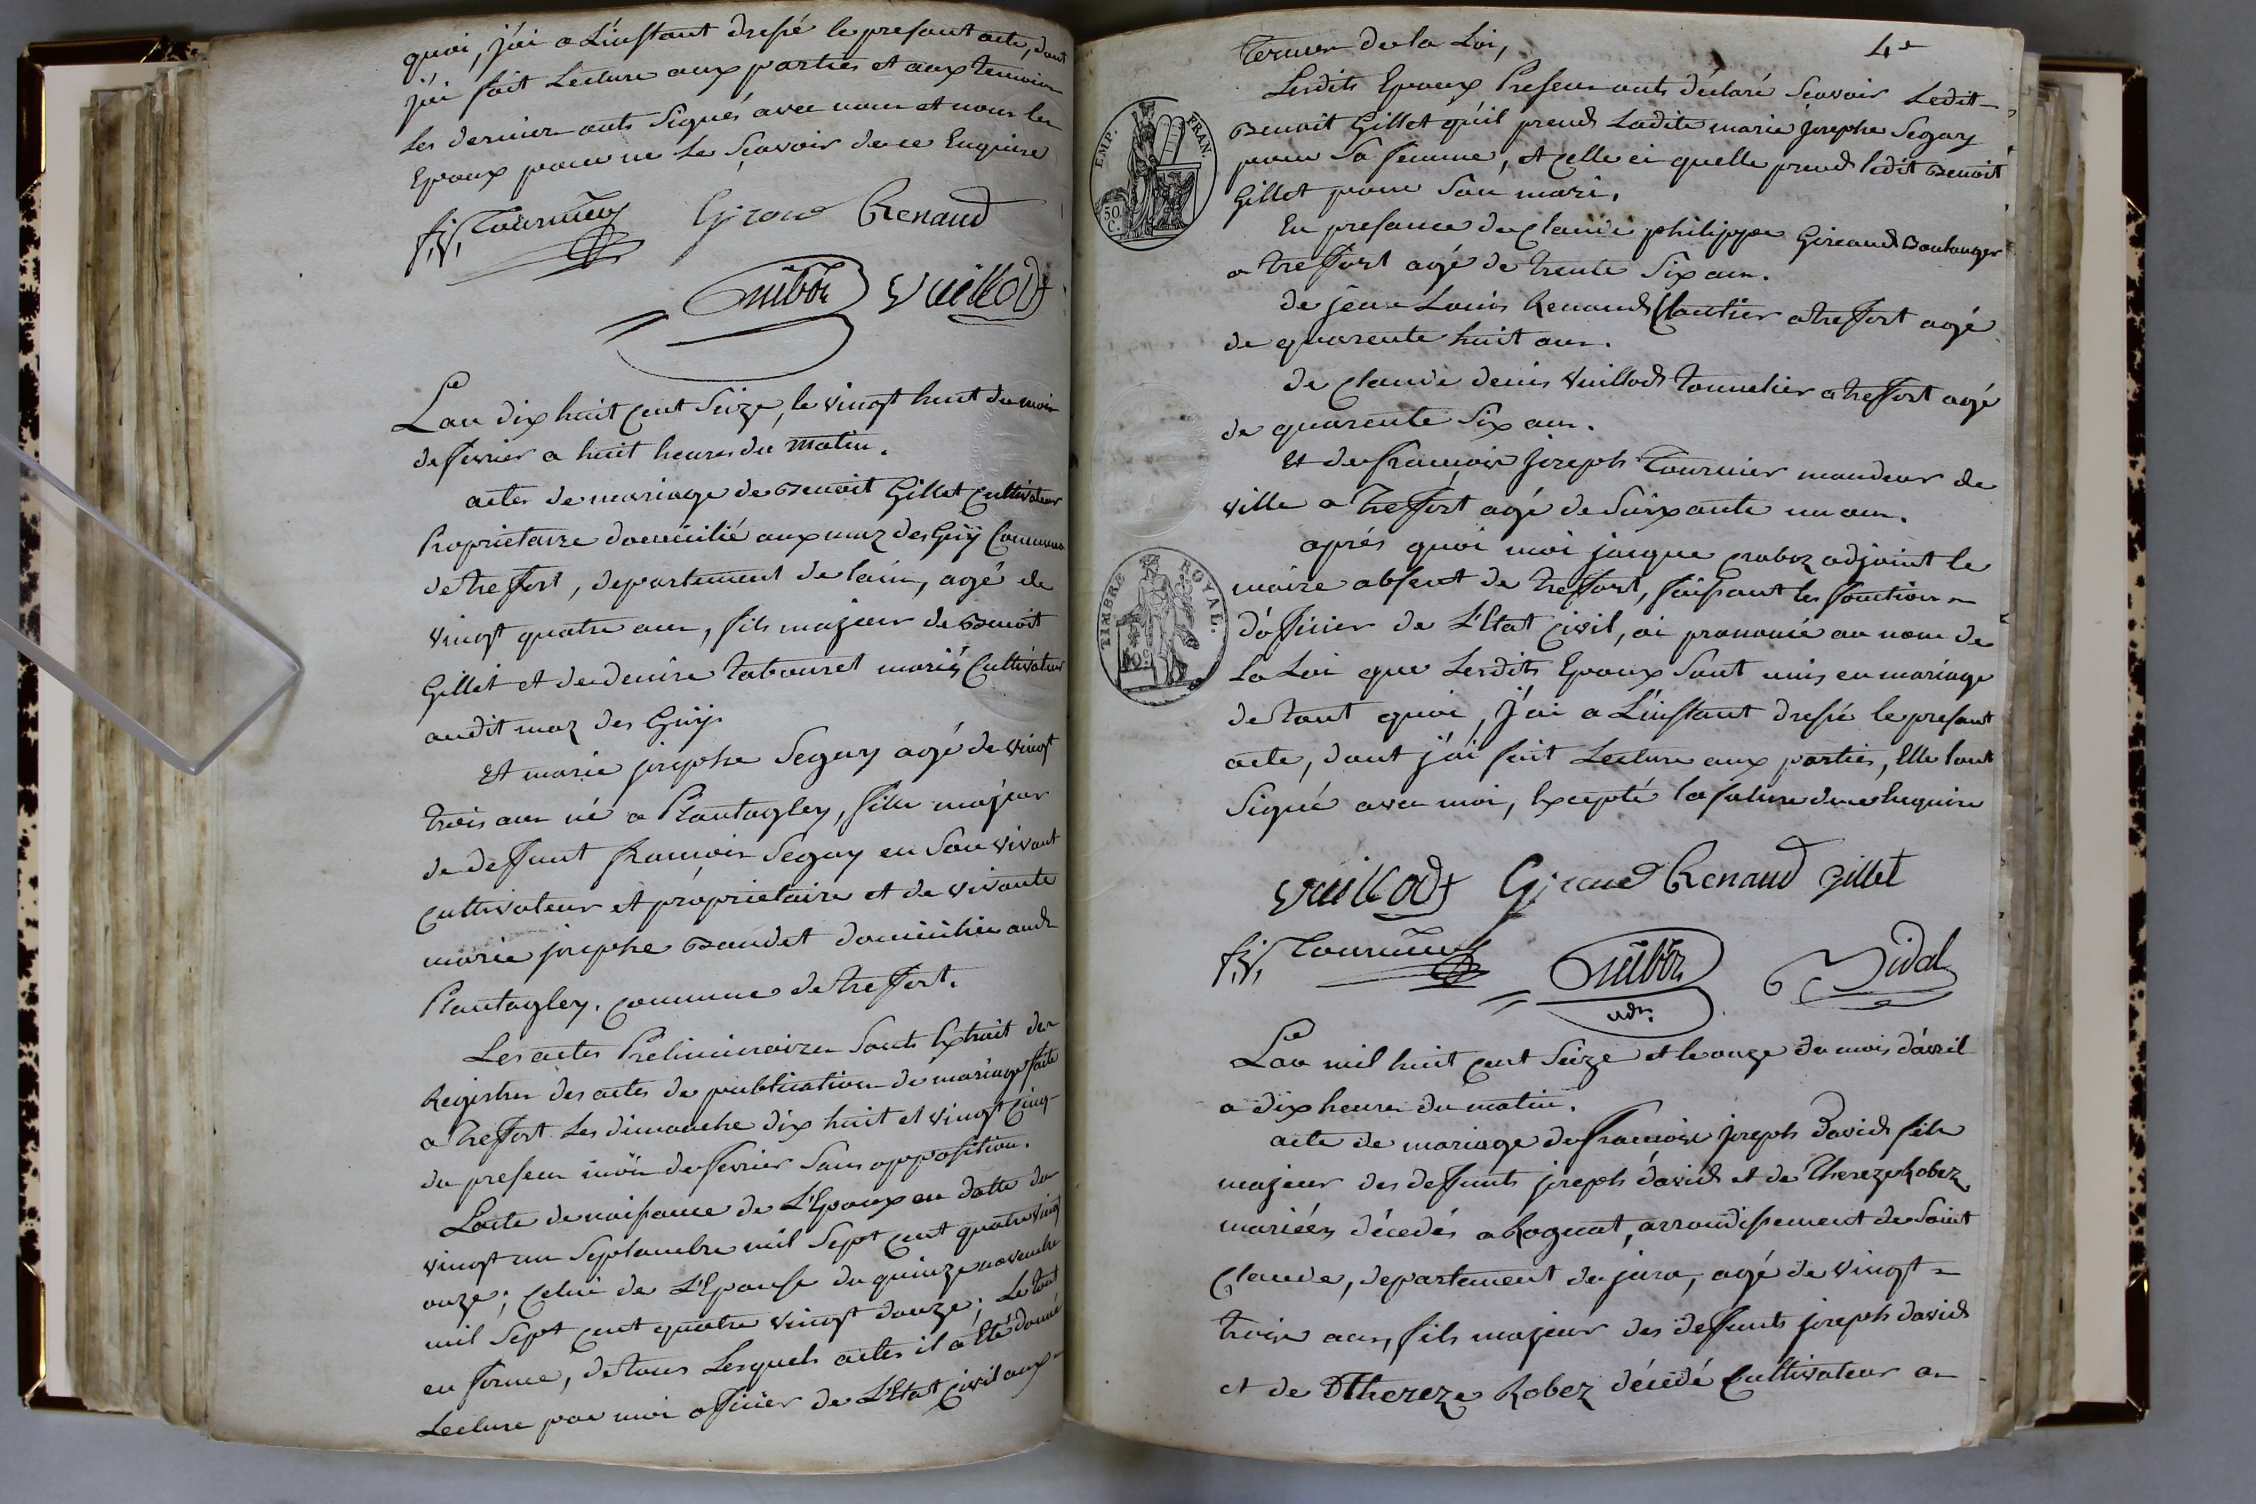 quoi, j'ai a L'instant dressé le presant acte, dont
j'ai fait Lecture aux parties et aux temoins
les derniers onts Signés avec nous et nom les
Epoux pour ne le Scavoir de ce Enquire
f. j. Tournier Giraud Renaud
Vuillod
L'an dix huit cent Seize, le vingt huit du mois
de fevrier a huit heures du matin.
actes de mariage de Benoit Gillet Cultivateur
Proprietaire domicilié aux maz des Guÿ Commune
de treffort, departement de lain, agé de
vingt quatre ans, fils majeur de Benoit
Gillet et de denise tabouret mariés Cultivateur
audit maz des Guÿ.
Et marie josephe Seguy agé de vingt
trois ans né a Plantagley, fille majeur
de deffunt francois Seguy en Son vivant
cultivateur et propriétaire et de vivante
marie josephe Baudet domiciliée aud.
Plantagley. commune de treffort.
Les actes Preliminaires Sonts Extrait des
Registres des actes de publication de mariage faite
a Treffort les dimanche dix huit et vingt Cinq
du presen mois de fevrier Sans opposition.
L'acte de naissance de L'Epoux en datte du
vingt un Septembre mil Sept cent quatre vingt
onze; Celui de L'Epouse du quinze novembre
mil Sept cent quatre vingt douze; Le tout
en forme, de tous Lesquels actes il a Eté donné
Lecture par moi officier de L'Etat Civil aux
4e
Termes de la Loi,
Lesdits Epoux Presens onts déclaré Scavoir Ledit
Benoit Gillet qu'il prend Ladite marie josephe Seguy
pour Sa femme, et celle ci quelle prend ledit Benoit
Gillet pour Son mari.
En presance de claude philippe Giraud Boulanger
a treffort agé de trente Six ans.
de jean Louis Renaud Cloutier a treffort agé
de quarente huit ans.
de claude denis Vuillod tonnelier a treffort agé
de quarente Six ans.
Et de francois joseph Tournier mandeur de
ville a Treffort agé de Soixante un ans.
aprés quoi moi jacque adjoint le
maire absent de treffort, faisant les fonctions
d'officier de L'Etat Civil, ai prononcé au nom de
La Loi que Lesdits Epoux Sont unis en mariage
de tout quoi, j'ai a L'instant dressé le presant
acte, dont j'ai fait Lecture aux parties, Elle l'ont
Signé avec moi, Excepté la future de ce Enquire
Vuillod Giraud Renaud gillet
f. j. Tournier Vidal
adj.
L'an mil huit cent Seize et le onze du mois d'avril
a dix heures du matin.
acte de mariage de francois joseph David fils
majeur des deffunts joseph david et de Thereze Robez
mariéés décedés a Rognat, arrondissement de Saint
Claude, departement du jura, agé de vingt
trois ans, fils majeur des deffunts joseph david
et de Thereze Robez décédé Cultivateur a
EMP. FRAN.
50 C.
TIMBRE ROYAL.